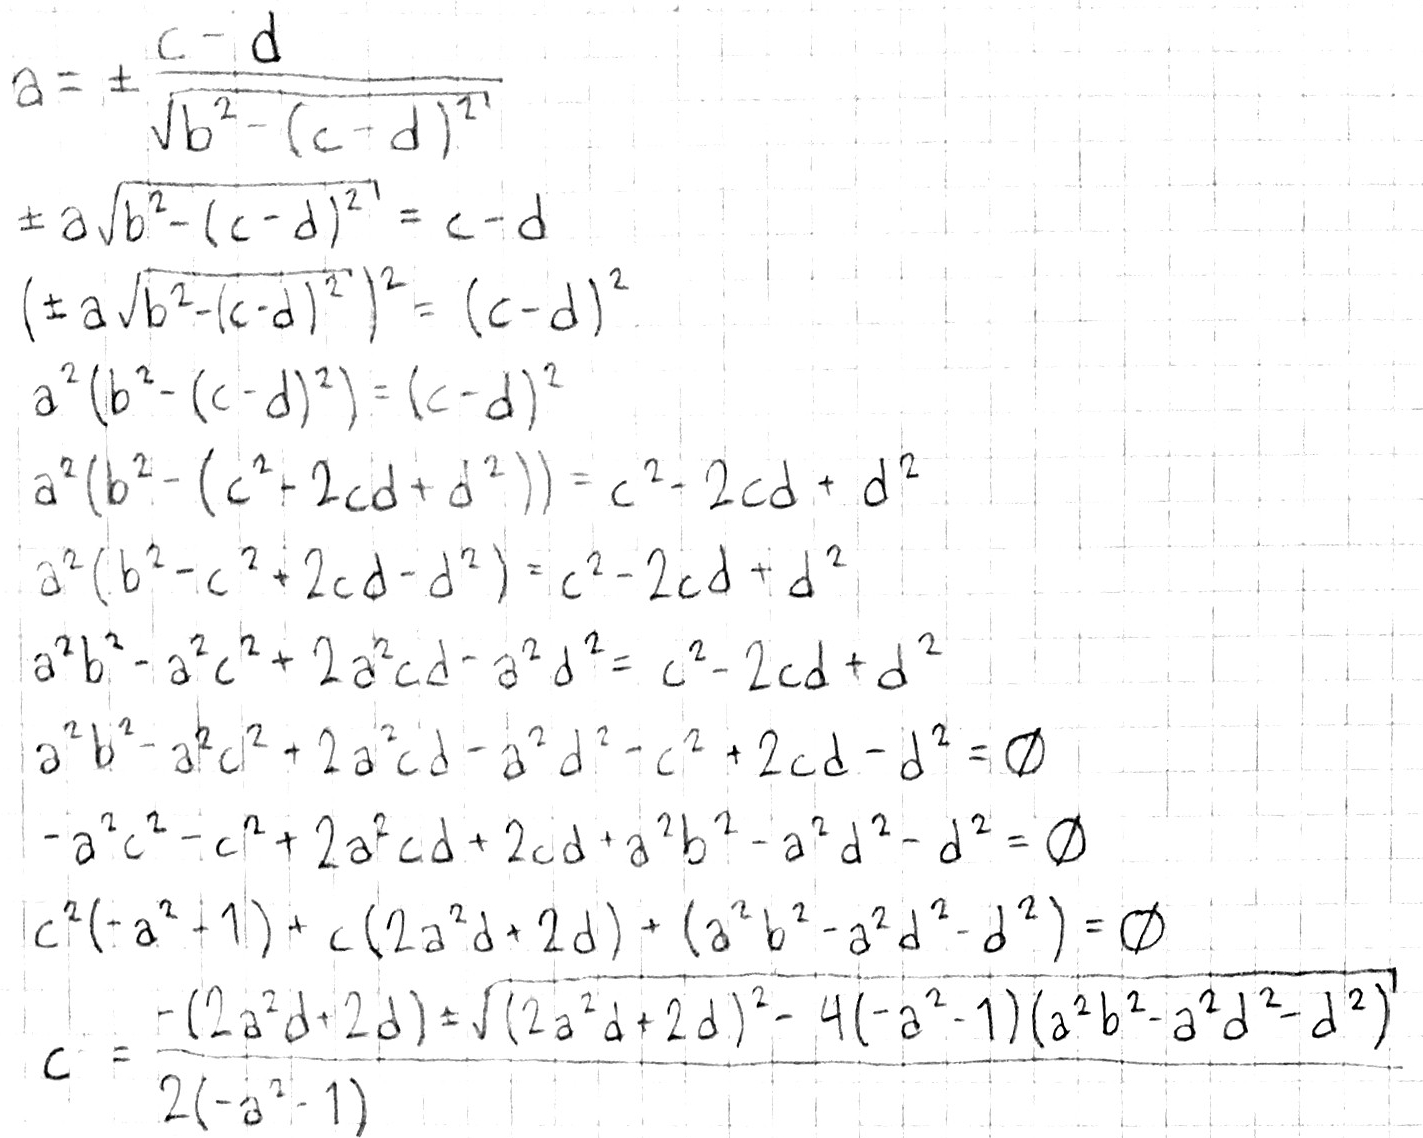 a = ± (c - d) / √(b² - (c - d)²)
± a√(b² - (c - d)²) = c - d
(± a√(b² - (c - d)²))² = (c - d)²
a²(b² - (c - d)²) = (c - d)²
a²(b² - (c² - 2cd + d²)) = c² - 2cd + d²
a²(b² - c² + 2cd - d²) = c² - 2cd + d²
a²b² - a²c² + 2a²cd - a²d² = c² - 2cd + d²
a²b² - a²c² + 2a²cd - a²d² - c² + 2cd - d² = ∅
-a²c² - c² + 2a²cd + 2cd + a²b² - a²d² - d² = ∅
c²(-a² - 1) + c(2a²d + 2d) + (a²b² - a²d² - d²) = ∅
c = (-(2a²d + 2d) ± √((2a²d + 2d)² - 4(-a² - 1)(a²b² - a²d² - d²))) / (2(-a² - 1))